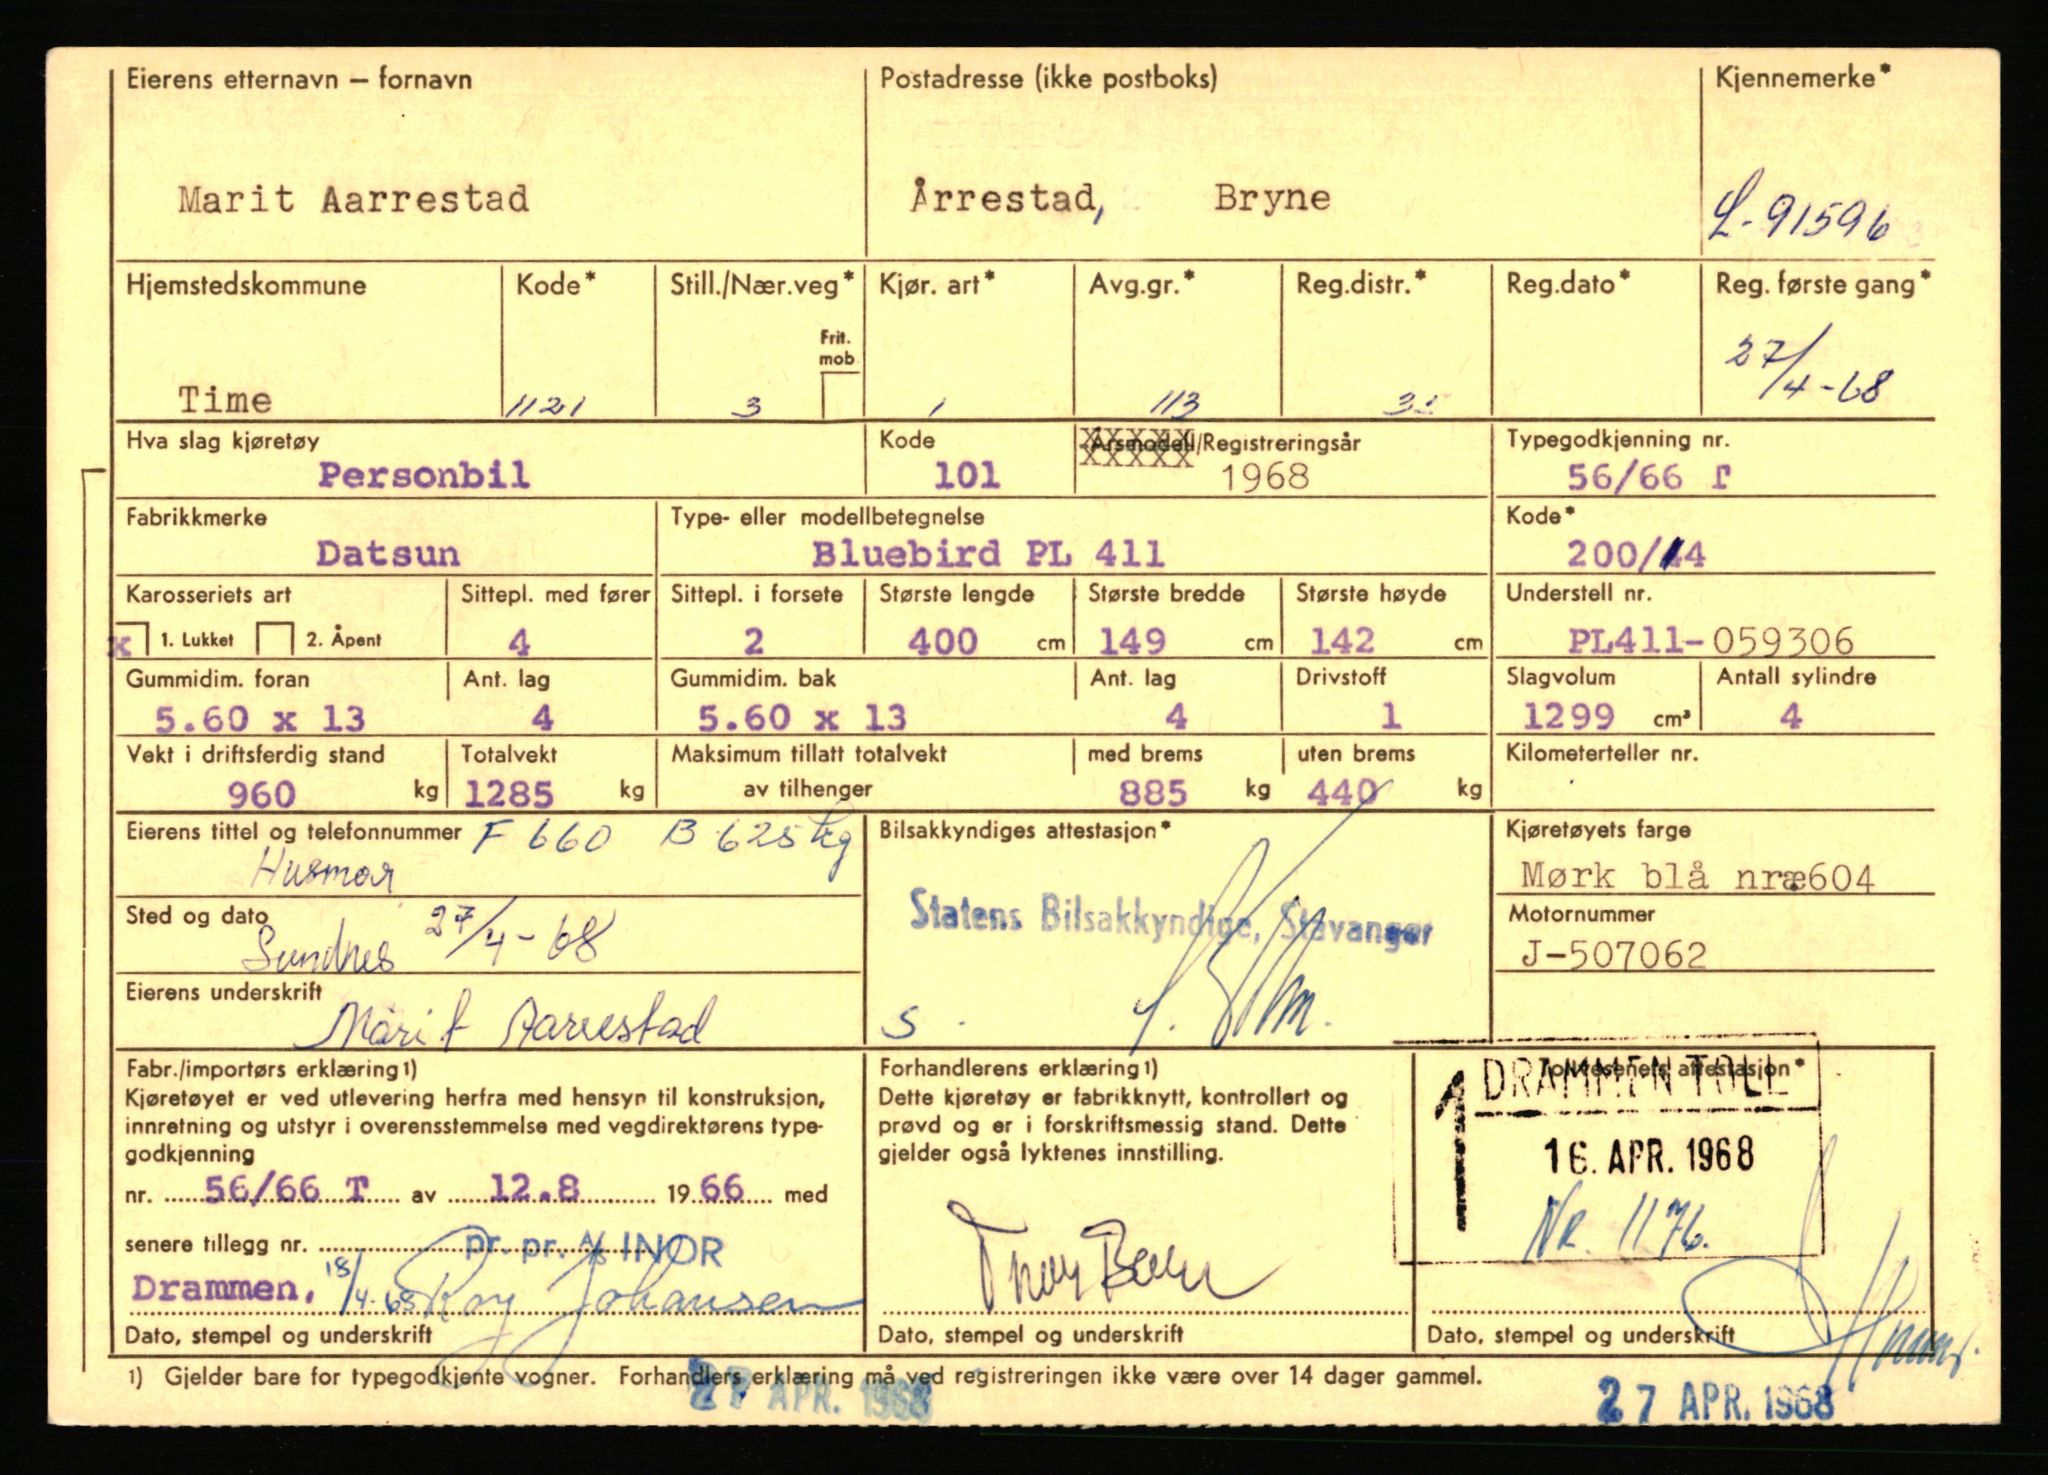 Eierens etternavn — fornavn
Postadresse (ikke postboks)
Kjennemerke*
Marit Aarrestad
Årrestad, Bryne
L-91596
Hjemstedskommune
Kode*
Still./Nær.veg*
Kjør. art*
Avg.gr.*
Reg.distr.*
Reg.dato*
Reg. første gang*
Frit. mob
Time
1121
3
1
113
35
27/4-68
Hva slag kjøretøy
Kode
Årsmodell/Registreringsår
Typegodkjenning nr.
Personbil
101
1968
56/66 T
Fabrikkmerke
Type- eller modellbetegnelse
Kode*
Datsun
Bluebird PL 411
200/14
Karosseriets art
Sittepl. med fører
Sittepl. i forsete
Største lengde
Største bredde
Største høyde
Understell nr.
x 1. Lukket 2. Åpent
4
2
400 cm
149 cm
142 cm
PL411-059306
Gummidim. foran
Ant. lag
Gummidim. bak
Ant. lag
Drivstoff
Slagvolum
Antall sylindre
5.60 x 13
4
5.60 x 13
4
1
1299 cm³
4
Vekt i driftsferdig stand
Totalvekt
Maksimum tillatt totalvekt
med brems
uten brems
Kilometerteller nr.
960 kg
1285 kg
av tilhenger
885 kg
440 kg
Eierens tittel og telefonnummer F 660 B 625 kg
Husmor
Bilsakkyndiges attestasjon*
Kjøretøyets farge
Mørk blå nræ604
Sted og dato
Sundnes 27/4-68
Statens Bilsakkyndige, Stavanger
Motornummer
J-507062
Eierens underskrift
Marit Aarrestad
S.
Fabr./importørs erklæring 1)
Kjøretøyet er ved utlevering herfra med hensyn til konstruksjon,
innretning og utstyr i overensstemmelse med vegdirektørens type-
godkjenning
nr. 56/66 T av 12.8 1966 med
senere tillegg nr. pr. pr. A/S INOR
Drammen, 18/4-68 Roy Johansen
Dato, stempel og underskrift
Forhandlerens erklæring 1)
Dette kjøretøy er fabrikknytt, kontrollert og
prøvd og er i forskriftsmessig stand. Dette
gjelder også lyktenes innstilling.
Dato, stempel og underskrift
Tollvesenets attestasjon*
1 DRAMMEN TOLL
16. APR. 1968
Nr. 1176.
Dato, stempel og underskrift
1) Gjelder bare for typegodkjente vogner. Forhandlers erklæring må ved registreringen ikke være over 14 dager gammel.
27 APR. 1968
27 APR. 1968